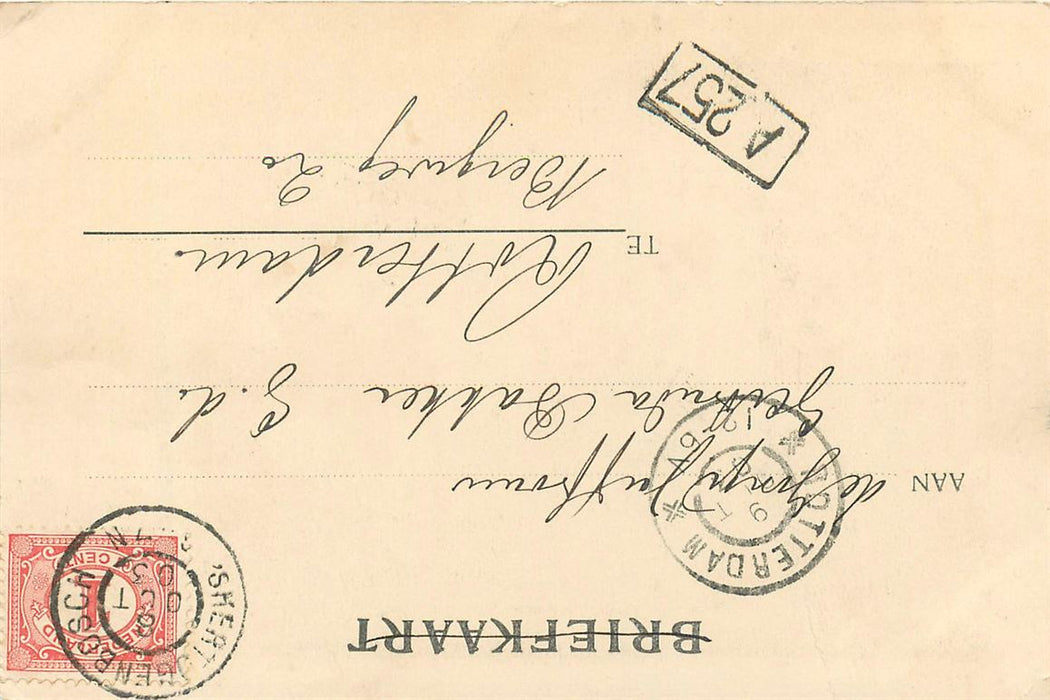 BRIEFKAART
AAN de Jonge Juffrouw
Gertruda Bakker G.d.
TE Rotterdam
Bergweg 20
A 257
ROTTERDAM
'SHERTOGENBOSCH
1 CENT